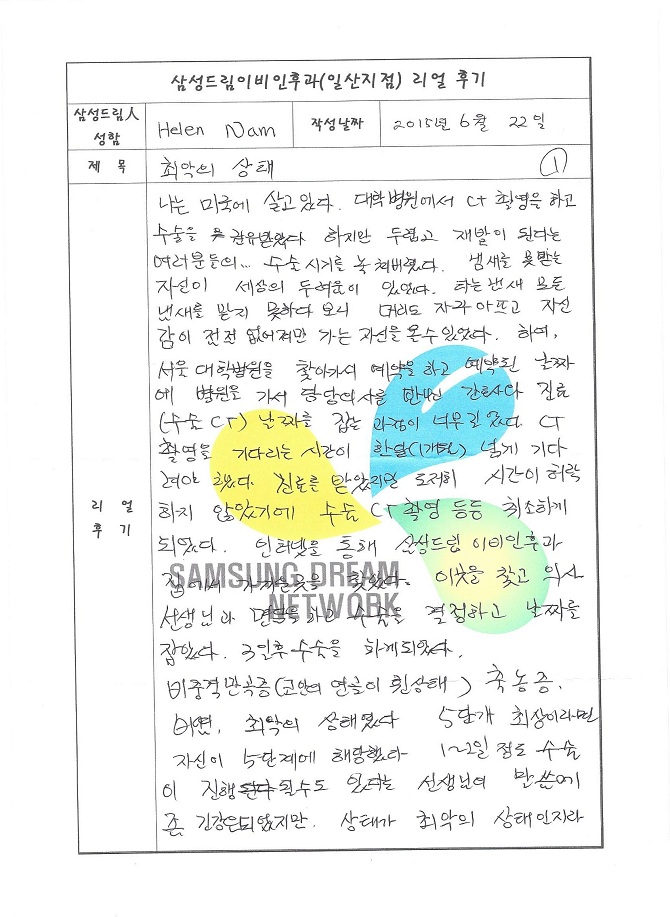 삼성드림이비인후과(일산지점) 리얼 후기
삼성드림人 성함
Helen Nam
작성날짜
2015년 6월 22일
제 목
최악의 상태
①
리 얼
후 기
나는 미국에 살고 있다. 대학병원에서 CT 촬영을 하고
수술을 권유받았다 하지만 두렵고 재발이 된다는
여러분들의... 수술시기를 놓쳐버렸다. 냄새를 못맡는
자신이 세상의 두려움이 있었다. 타는 냄새 모든
냄새를 맡지 못하다 보니 머리도 자꾸 아프고 자신
감이 점점 없어져만 가는 자신을 볼수 있었다. 하여,
서울 대학병원을 찾아가서 예약을 하고 예약된 날짜
에 병원을 가서 담당의사를 만나 간호사와 진료
(수술 CT) 날짜를 잡는 과정이 너무 길었다. CT
촬영을 기다리는 시간이 한달(1개월) 넘게 기다
려야 했다. 진료를 받았지만 도저히 시간이 허락
하지 않았기에 수술 CT촬영 등등 취소하게
되었다. 인터넷을 통해 삼성드림 이비인후과
집에서 가까운곳을 찾았다. 이곳을 찾고 의사
SAMSUNG DREAM
NETWORK
선생님과 면담을 하고 수술을 결정하고 날짜를
잡았다. 3일후 수술을 하게되었다.
비중격만곡증(코안의 연골이 휜상태) 축농증,
비염, 최악의 상태였다 5단계 최상이라면
자신이 5단계에 해당했다 1~2일 정도 수술
이 진행 될수도 있다는 선생님의 말씀에
좀 긴장은되었지만. 상태가 최악의 상태인지라